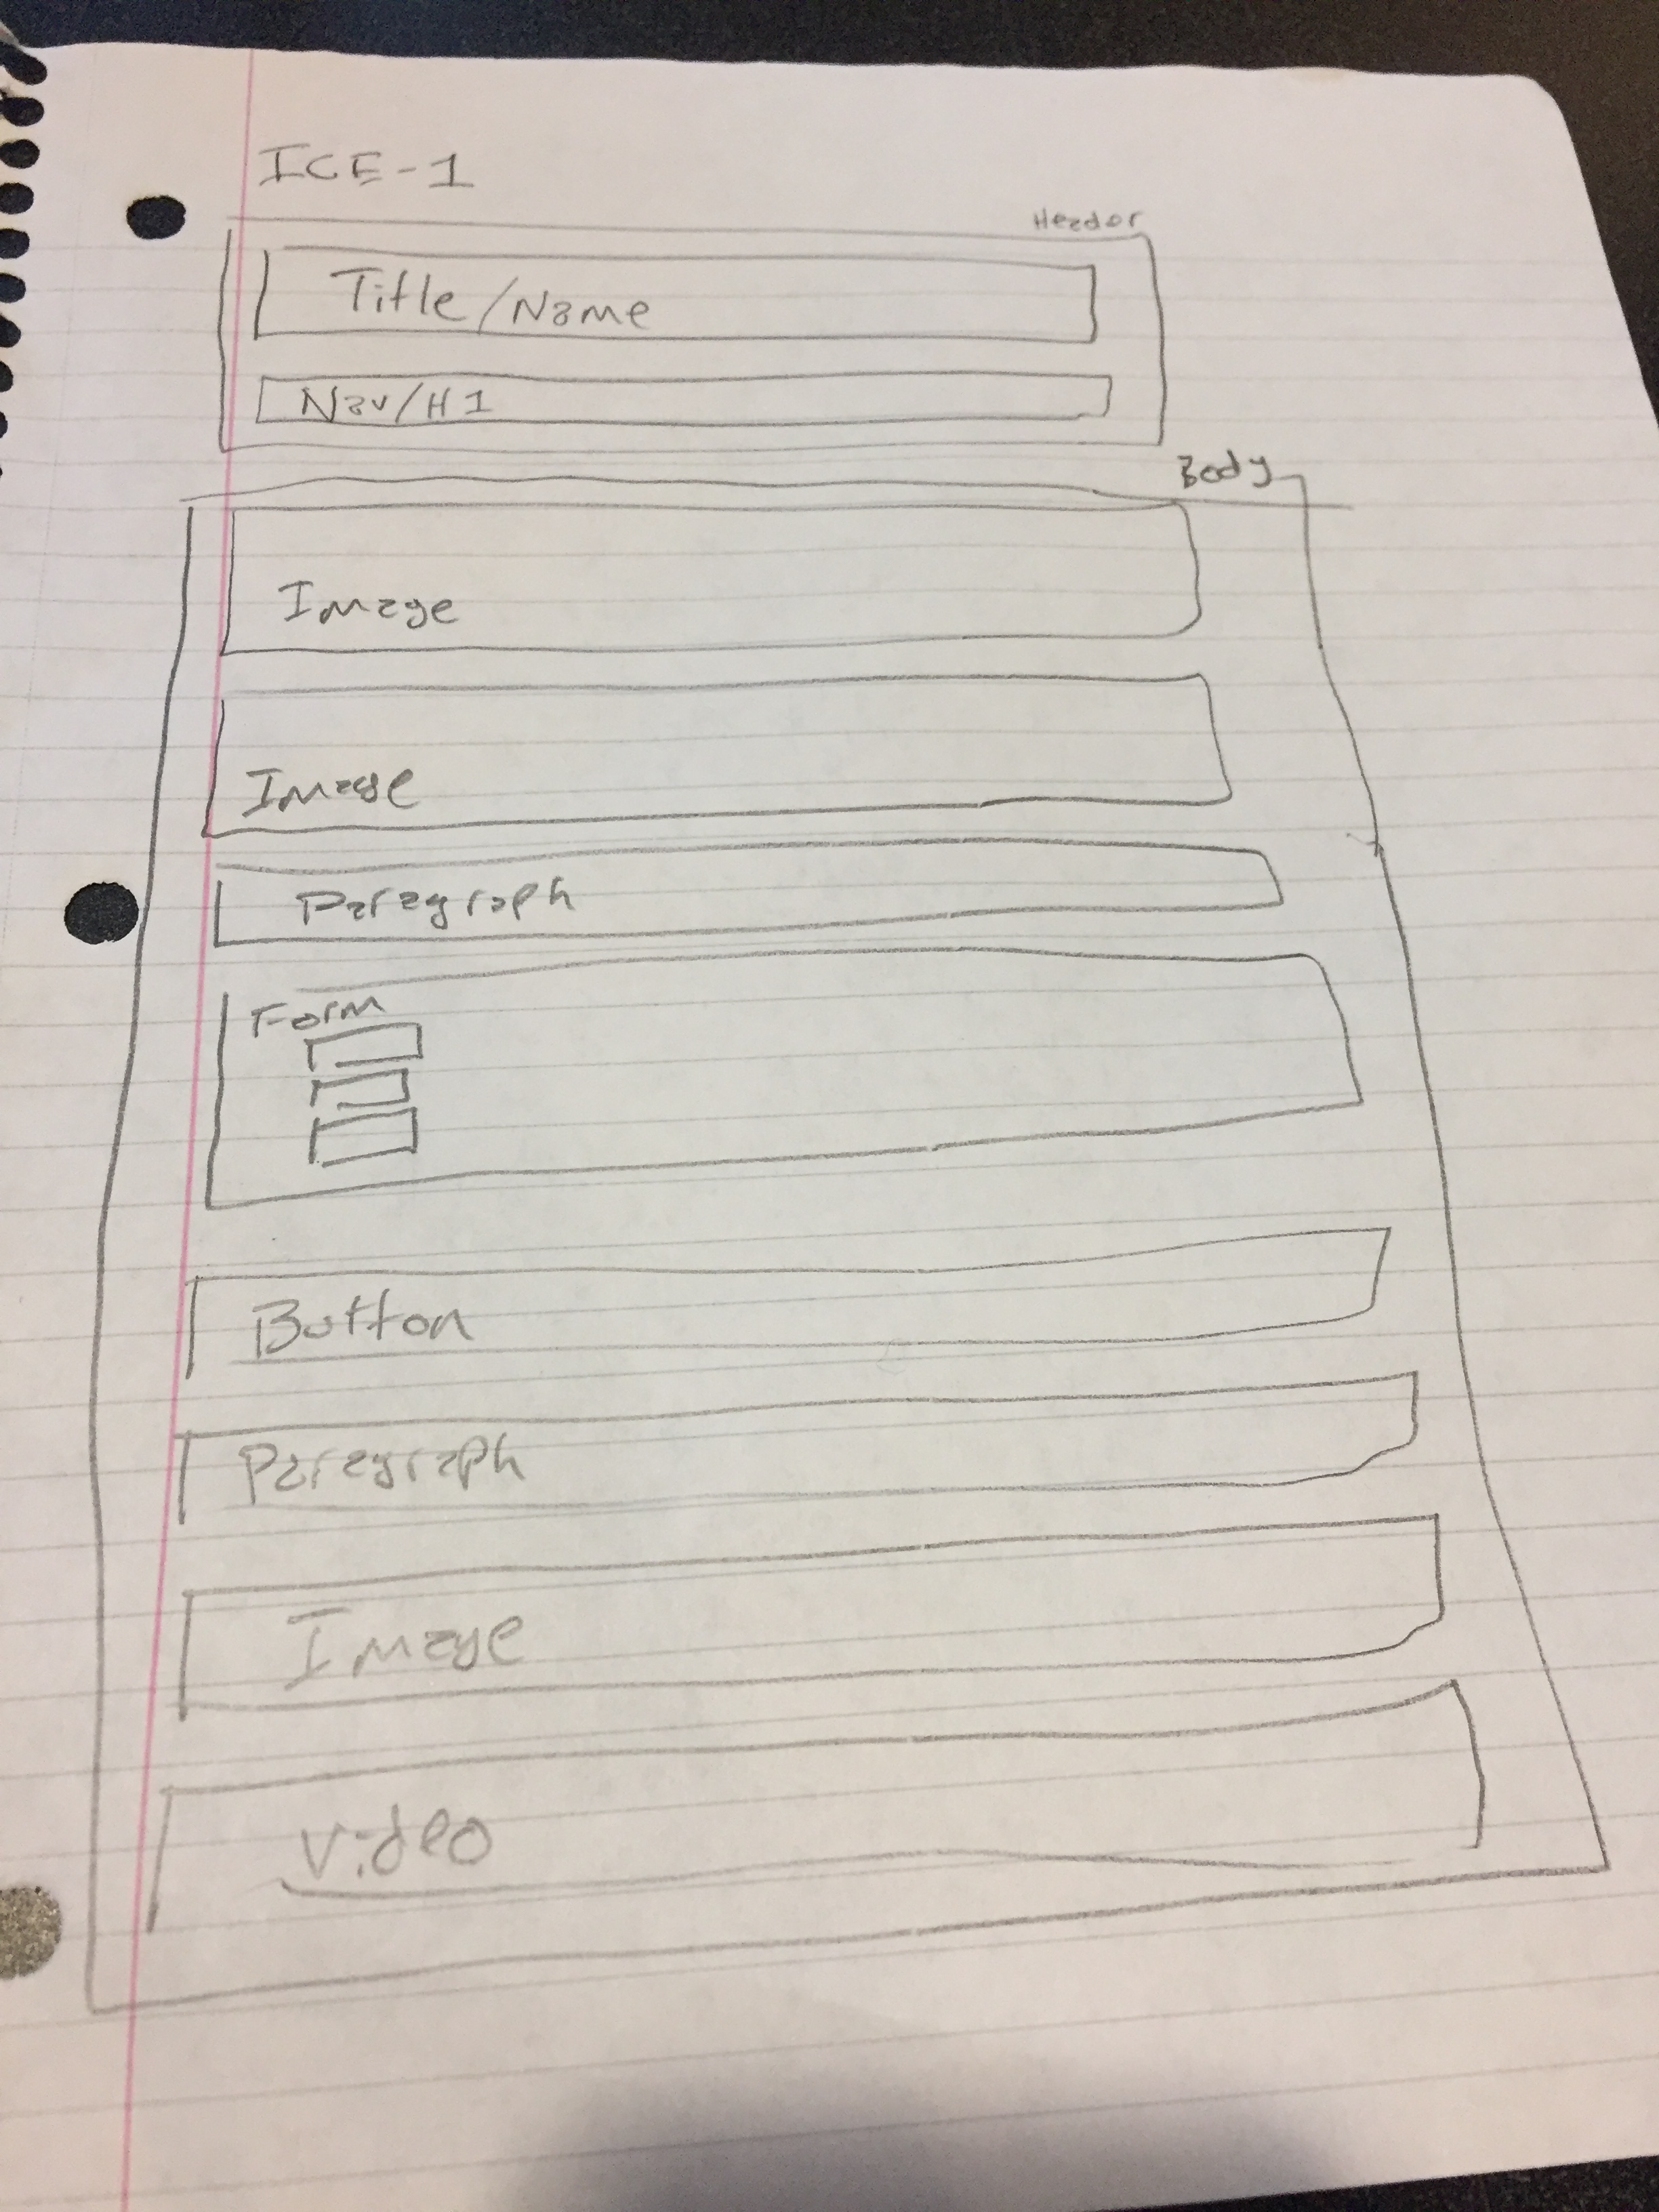 ICE-1
Header
Title/Name
Nav/H1
Body
Image
Image
Paragraph
Form
Button
Paragraph
Image
Video